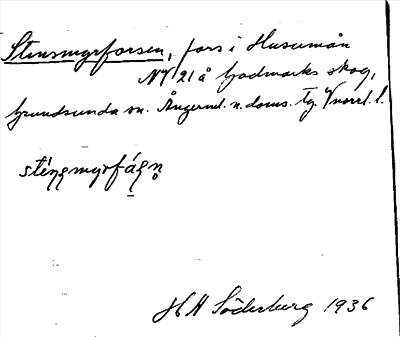 Stensmyrforsen, fors i Husumån
NV 21 å Godmarks skog,
Grundsunda sn. Ångerml. n. doms. Tg. Vnorrl. l.
HH Söderberg 1936